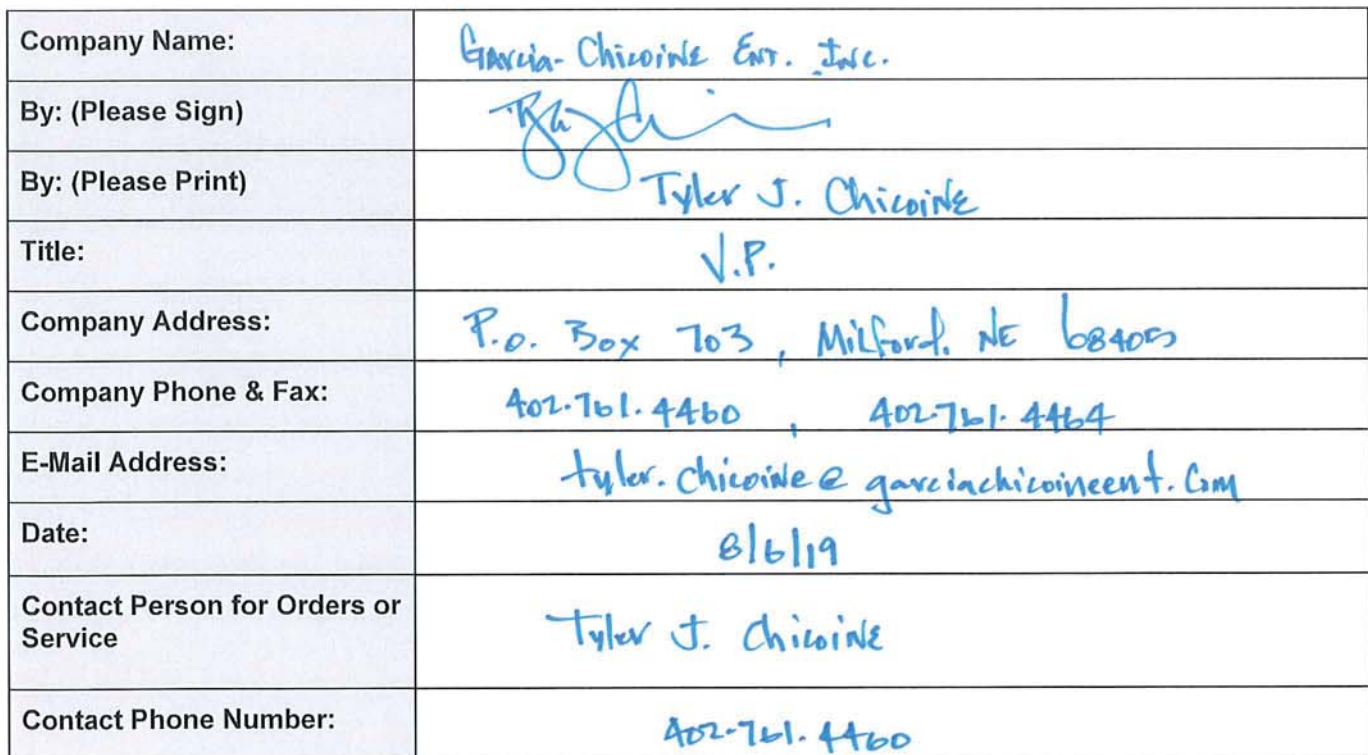 Company Name: Garcia-Chicoine Ent. Inc.
By: (Please Sign)
By: (Please Print) Tyler J. Chicoine
Title: V.P.
Company Address: P.O. Box 703, Milford, NE 68405
Company Phone & Fax: 402.761.4460, 402.761.4464
E-Mail Address: tyler.chicoine@garciachicoineent.com
Date: 8/6/19
Contact Person for Orders or
Service Tyler J. Chicoine
Contact Phone Number: 402.761.4460